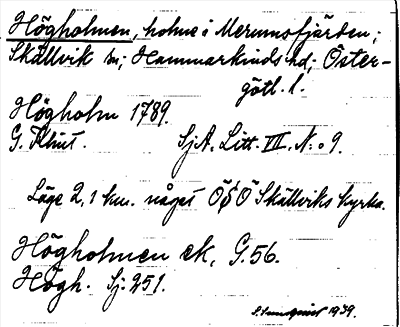 Högholmen, holme i Merumsfjärden;
Skällvik sn; Hammarkinds hd; Öster-
götl. l.
Högholm 1789.
G. Klint. SjA. Litt. VII. N:o 9.
Läge 2,1 km. något ÖSÖ Skällviks kyrka.
Högholmen ek. G.56.
Högh. Sj: 251.
S. Sundqvist 1939.